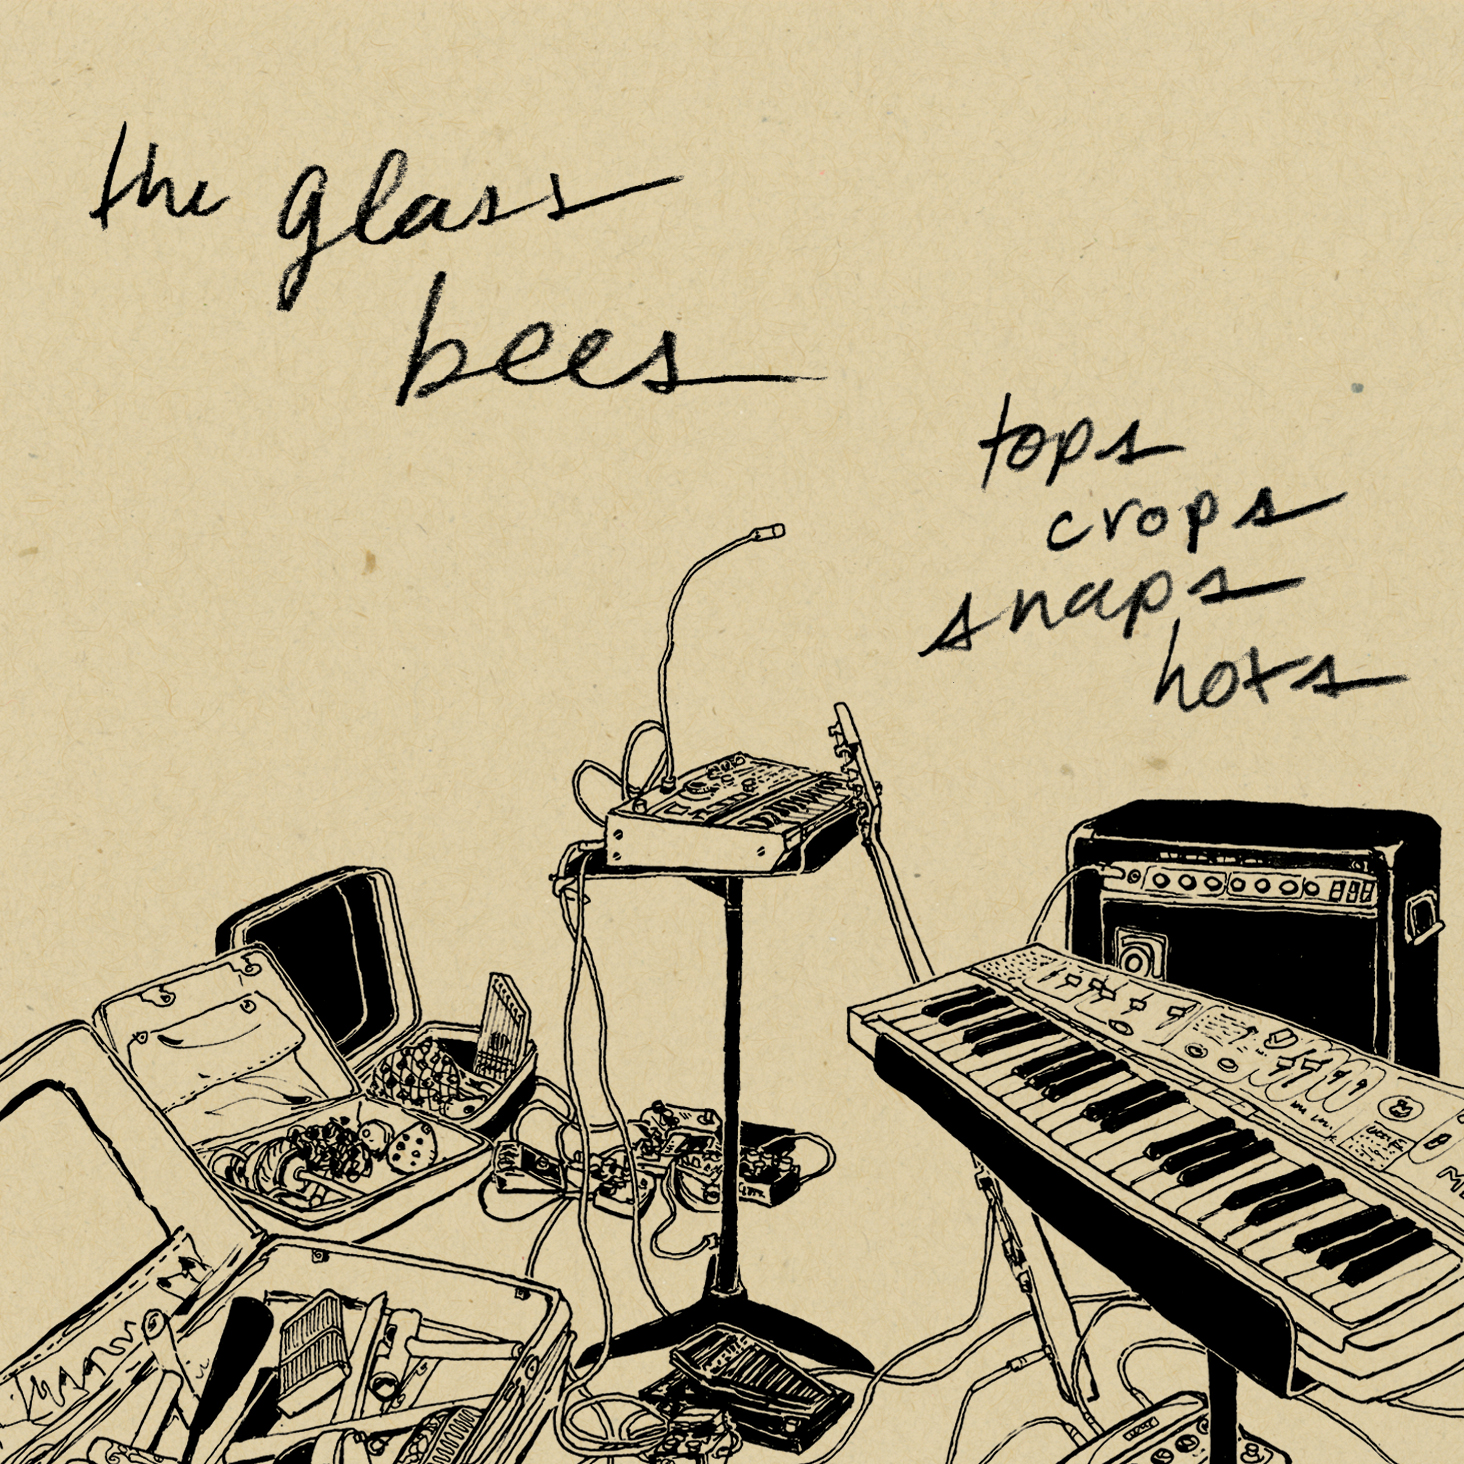 the glass
bees
tops
crops
snaps
hots